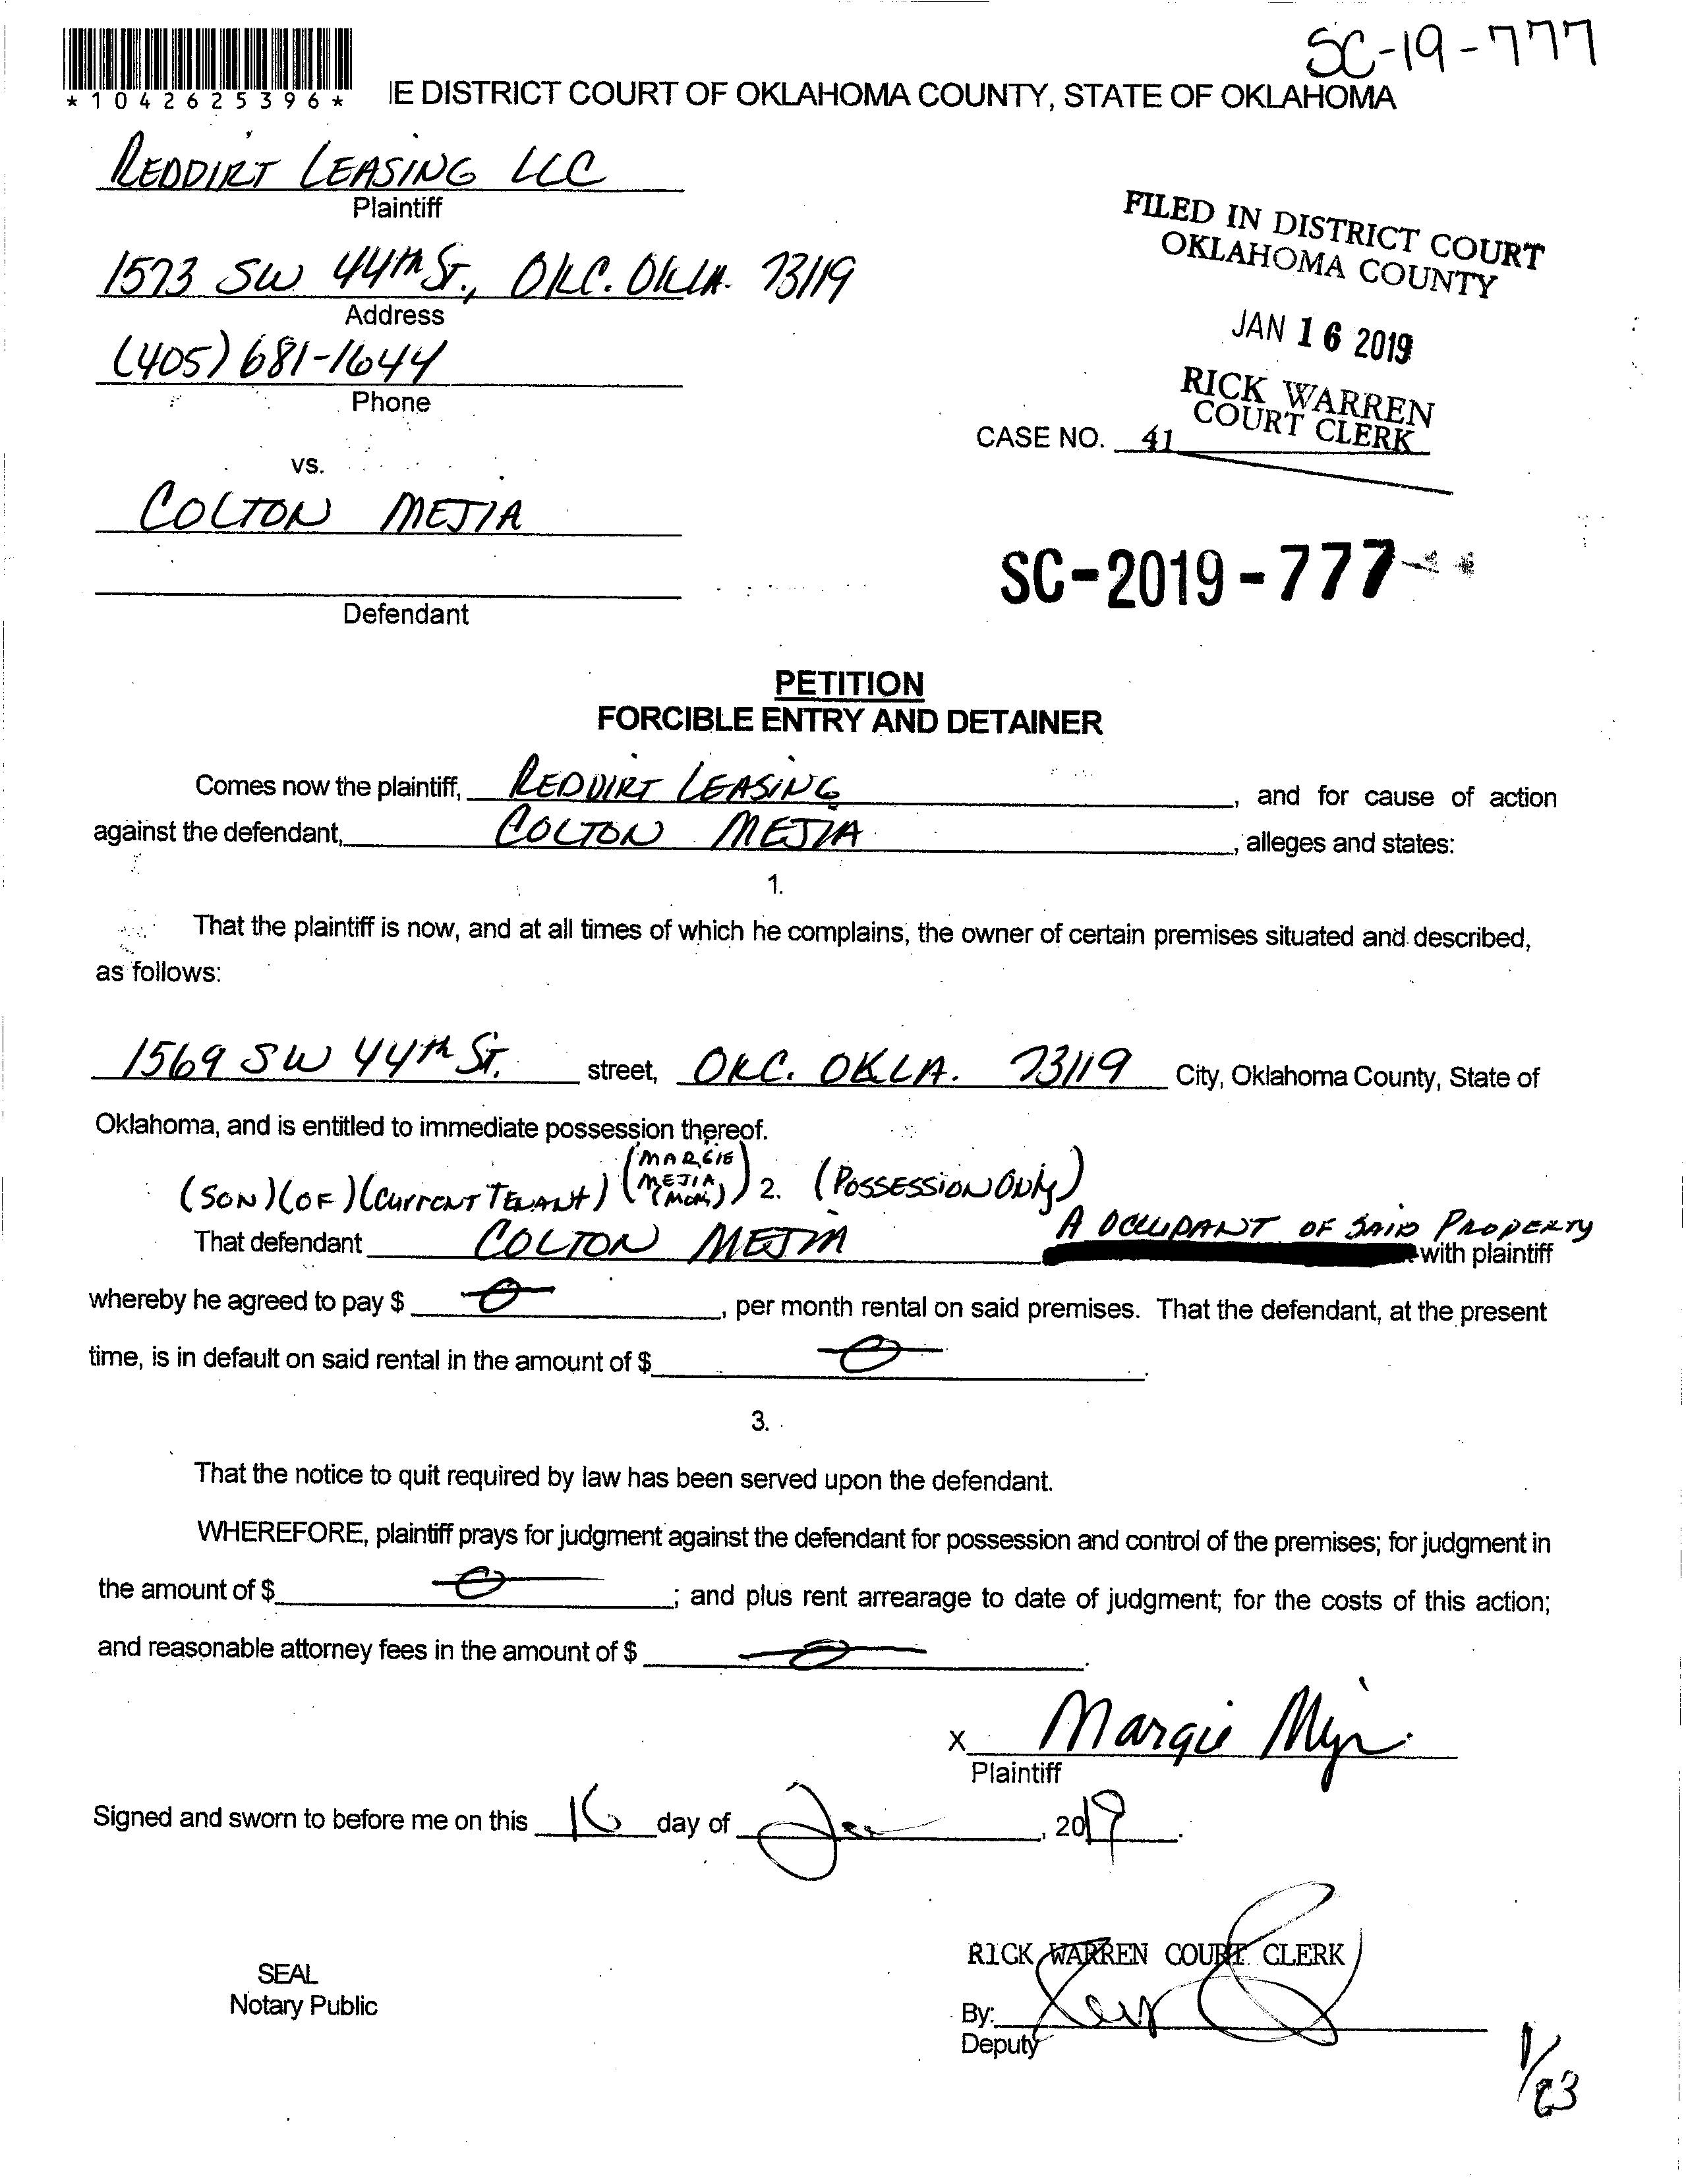 SC-19-777
*1042625396*
IE DISTRICT COURT OF OKLAHOMA COUNTY, STATE OF OKLAHOMA
REDDIRT LEASING LLC
Plaintiff
1573 SW 44th ST., OKC. OKLA. 73119
Address
(405) 681-1644
Phone
FILED IN DISTRICT COURT
OKLAHOMA COUNTY
JAN 16 2019
RICK WARREN
COURT CLERK
CASE NO. 41
vs.
COLTON MEJIA
Defendant
SC-2019-777
PETITION
FORCIBLE ENTRY AND DETAINER
Comes now the plaintiff, REDDIRT LEASING, and for cause of action
against the defendant, COLTON MEJIA, alleges and states:
1.
That the plaintiff is now, and at all times of which he complains, the owner of certain premises situated and described,
as follows:
1569 SW 44th ST. street, OKC. OKLA. 73119 City, Oklahoma County, State of
Oklahoma, and is entitled to immediate possession thereof.
(SON) (OF) (CURRENT TENANT) (MARGIE MEJIA, (MOM)) 2. (POSSESSION ONLY)
That defendant COLTON MEJIA A OCCUPANT OF SAID PROPERTY with plaintiff
whereby he agreed to pay $ 0, per month rental on said premises. That the defendant, at the present
time, is in default on said rental in the amount of $ 0.
3.
That the notice to quit required by law has been served upon the defendant.
WHEREFORE, plaintiff prays for judgment against the defendant for possession and control of the premises; for judgment in
the amount of $ 0; and plus rent arrearage to date of judgment; for the costs of this action;
and reasonable attorney fees in the amount of $ 0.
x Margie
Plaintiff
Signed and sworn to before me on this 16 day of Jan, 2019.
RICK WARREN COURT CLERK
SEAL
Notary Public
By:
Deputy
1/23